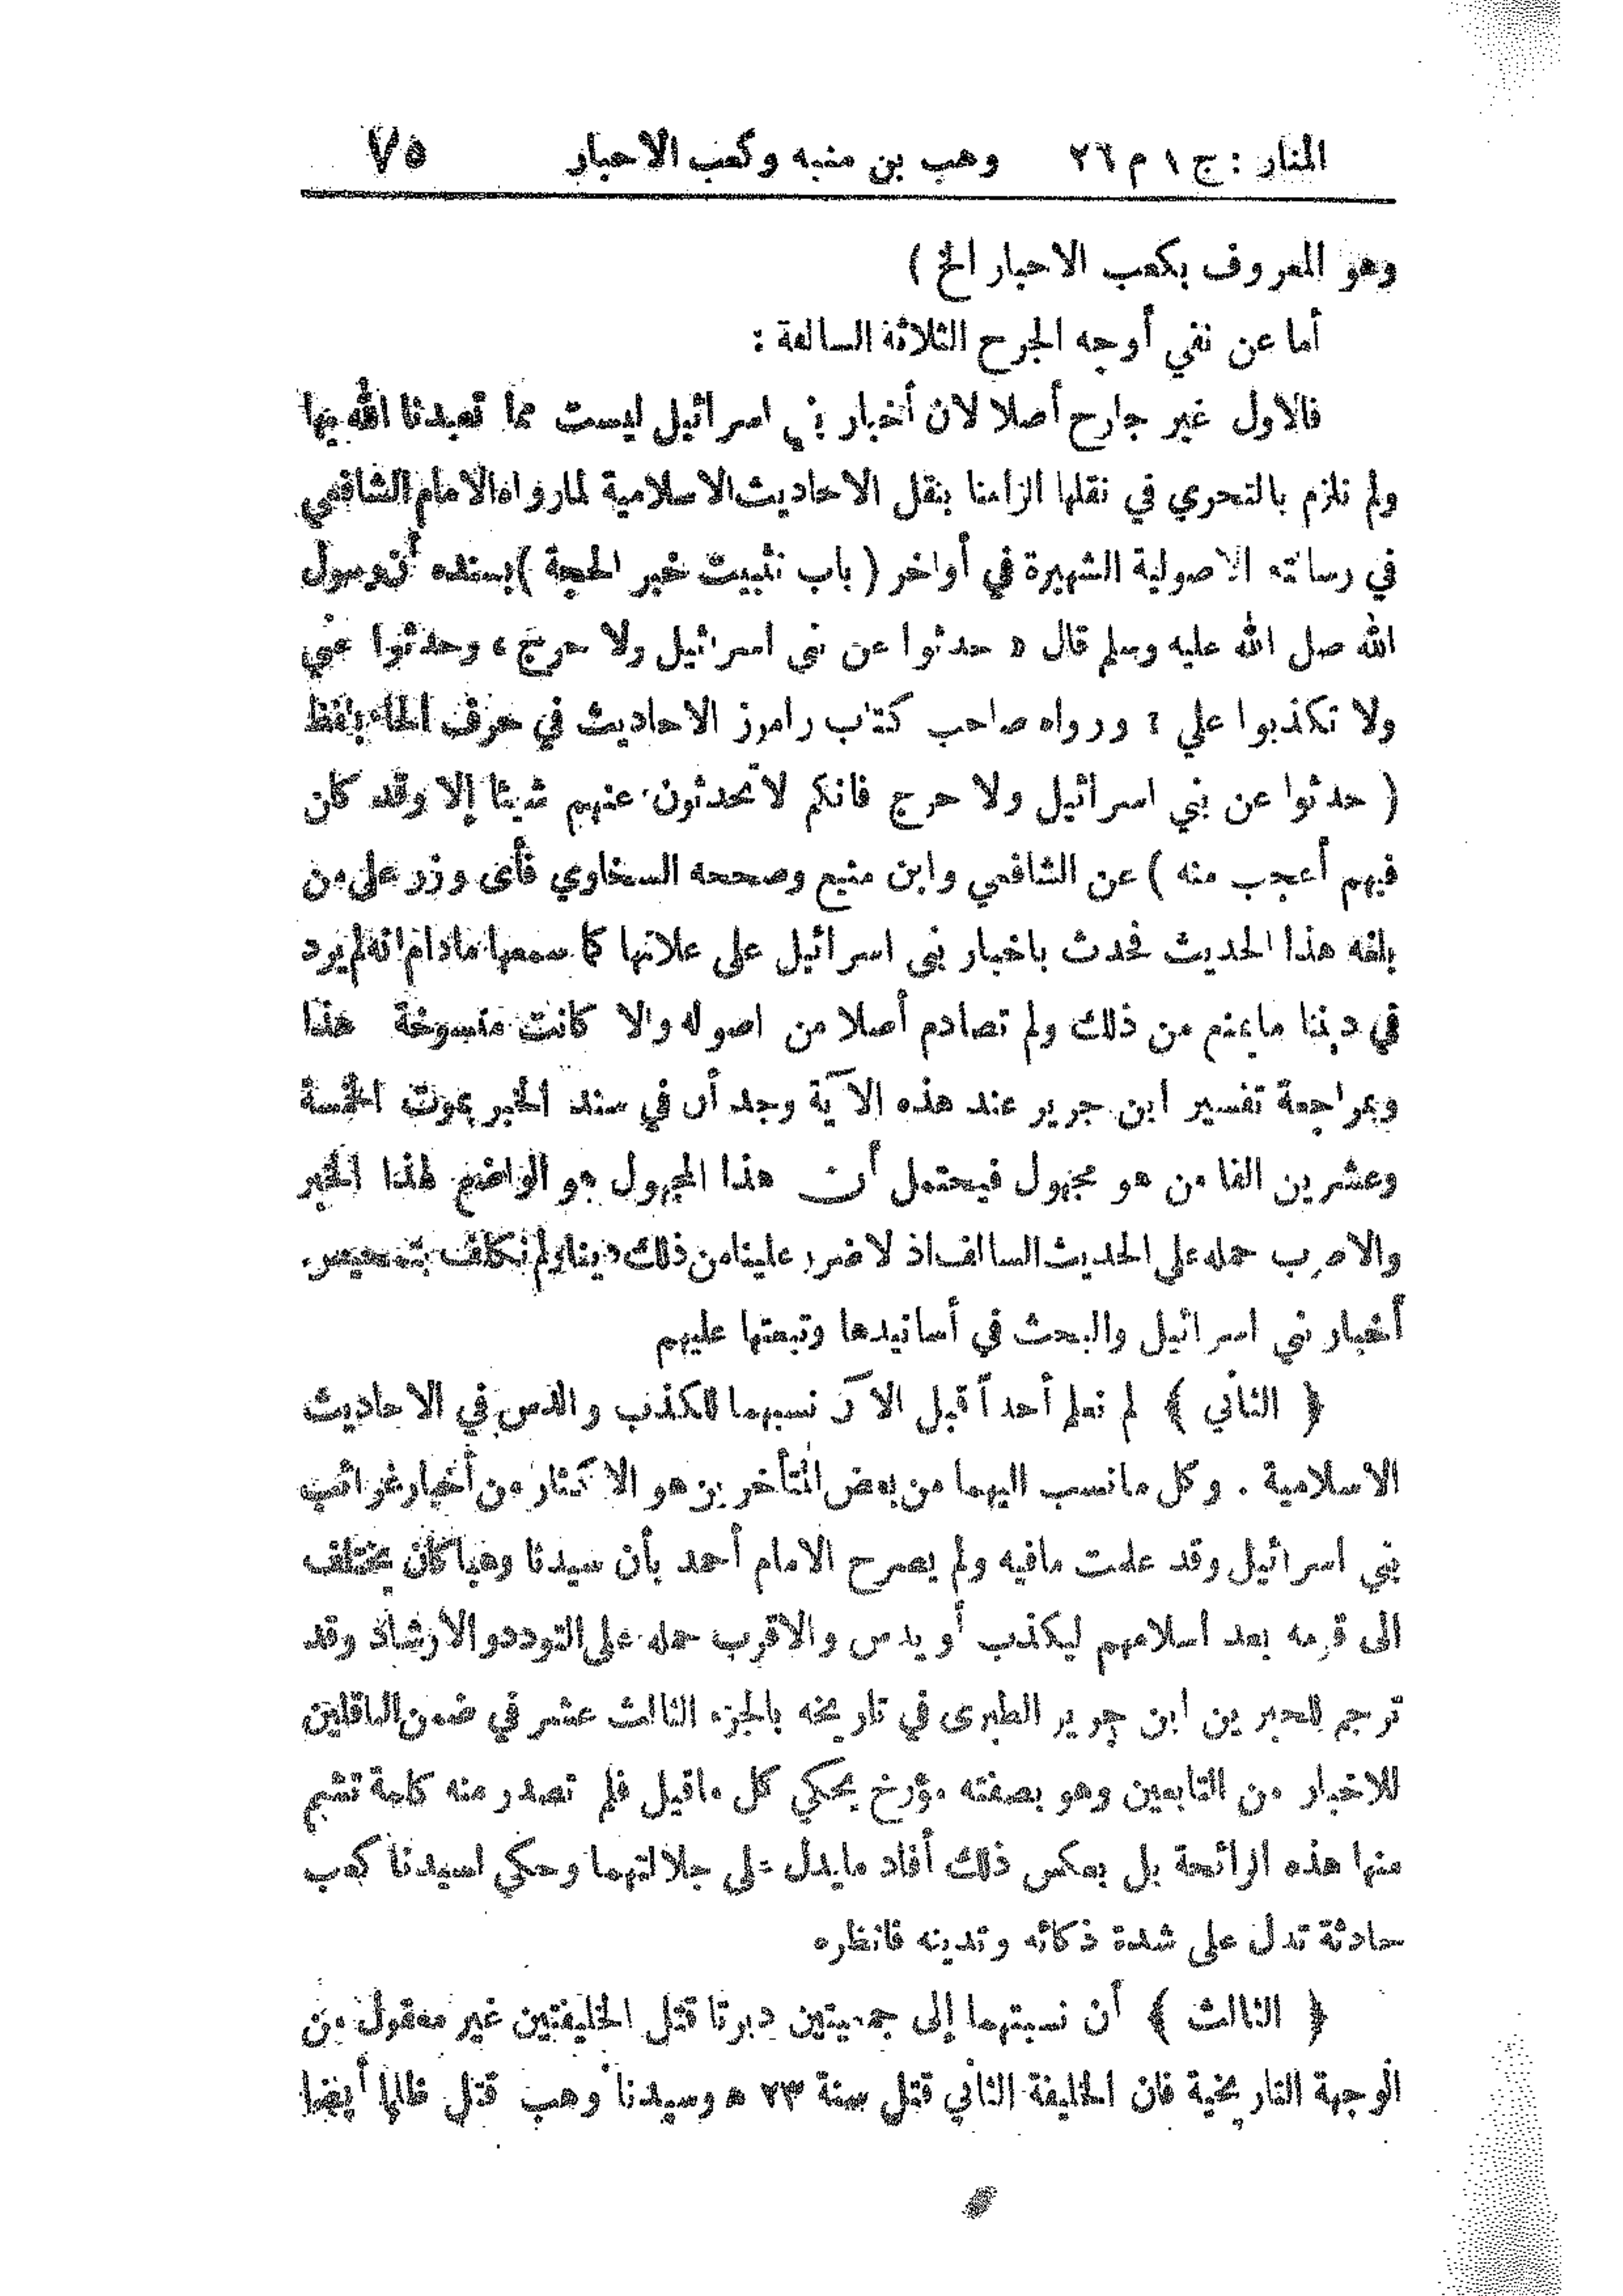 المنار : ج ١ م ٢٦ وهب بن منبه وكعب الاحبار ٧٥
وهو المعروف بكعب الاحبار الخ )
أما عن نفي أوجه الجرح الثلاثة السالفة :
فالاول غير جارح أصلا لان أخبار بني اسرائيل ليست مما تعبدنا الله بها
ولم نلزم بالتحري في نقلها الزامنا بنقل الاحاديث الاسلامية لما رواه الامام الشافعي
في رسالته الاصولية الشهيرة في أواخر ( باب تثبيت خبر الحجة ) بسنده أن رسول
الله صل الله عليه وسلم قال « حدثوا عن بني اسرائيل ولا حرج ، وحدثوا عني
ولا تكذبوا علي » ورواه صاحب كتاب راموز الاحاديث في حرف الحاء بلفظ
( حدثوا عن بني اسرائيل ولا حرج فانكم لا تحدثون عنهم شيئا إلا وقد كان
فيهم أعجب منه ) عن الشافعي وابن منيع وصححه السخاوي فأى وزر على من
بلغه هذا الحديث فحدث باخبار بني اسرائيل على علاتها كما سمعها مادام انه لم يرد
في ديننا مايمنع من ذلك ولم تصادم أصلا من اصوله والا كانت منسوخة هذا
وبمراجعة تفسير ابن جرير عند هذه الآية وجد أن في سند الخبر بموت الخمسة
وعشرين الفا من هو مجهول فيحتمل أن هذا المجهول هو الواضع لهذا الخبر
والاصوب حمله على الحديث السالف اذ لا ضرر علينا من ذلك دينا ولم نكلف بتمحيص
أخبار بني اسرائيل والبحث في أسانيدها وتبعتها عليهم
﴿ الثاني ﴾ لم نعلم أحداً قبل الآن نسبهما للكذب والدس في الاحاديث
الاسلامية . وكل مانسب اليهما من بعض المتأخرين هو الاكثار من أخبار غرائب
بني اسرائيل وقد علمت مافيه ولم يصرح الامام أحمد بأن سيدنا وهبا كان يختلف
الى قومه بعد اسلامهم ليكذب أو يدس والاقرب حمله على التودد والارشاد وقد
ترجم للحبرين ابن جرير الطبرى في تاريخه بالجزء الثالث عشر في ضمن الناقلين
للاخبار من التابعين وهو بصفته مؤرخ يحكي كل ماقيل فلم تصدر منه كلمة تشم
منها هذه الرائحة بل بعكس ذلك أفاد مايدل على جلالتهما وحكي لسيدنا كعب
حادثة تدل على شدة ذكائه وتدينه فانظره
﴿ الثالث ﴾ أن نسبتهما إلى جمعيتين دبرتا قتل الخليفتين غير معقول من
الوجهة التاريخية فان الخليفة الثاني قتل سنة ٢٣ ه وسيدنا وهب قتل ظالما أيضا